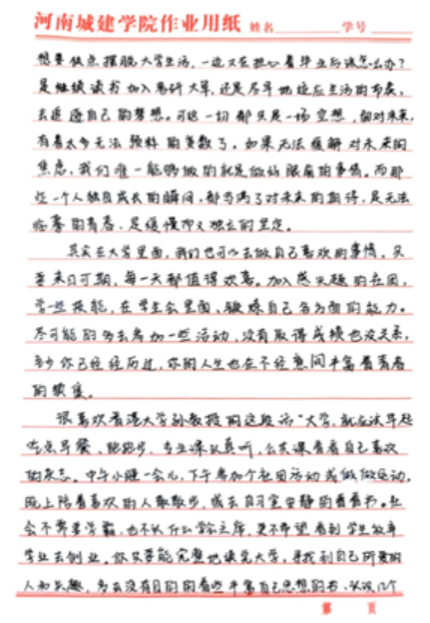 河南城建学院作业用纸 姓名 学号
想要快点摆脱大学生活，一边又在担心着毕业后该怎么办？
是继续读书加入考研大军，还是尽早地适应生活的节奏，
去追逐自己的梦想。可这一切都只是一场空想，面对未来，
有着太多无法预料的变数了。如果无法缓解对未来的
焦虑，我们唯一能够做的就是做好眼前的事情。而那
些一个人独自成长的瞬间，都当满了对未来的期待，是无法
的青春，是缓慢而又独立的坚定。
其实在大学里面，我们也可以去做自己喜欢的事情，只
要来日可期，每一天都值得欢喜。加入感兴趣的社团，
学一些技能，在学生会里面，锻炼自己各方面的能力。
尽可能的多去参加一些活动，没有取得成绩也没关系，
至少你已经经历过，你的人生也在不经意间丰富着青春
的
很喜欢香港大学孙教授的这段话“大学，就应该早起
吃点早餐，跑跑步，专业课认真听，公共课看看自己喜欢
的杂志。中午小睡一会儿，下午参加个社团活动或做做运动。
晚上陪着喜欢的人散散步，或去自习室安静的看看书。社
会不需要学霸，也不认什么学生会主席，更不希望看到学生放弃
学业去创业。你只要能完整地读完大学，寻找到自己所爱的
人和兴趣，多去没有目的的看些丰富自己思想的书，认识几个
第 页